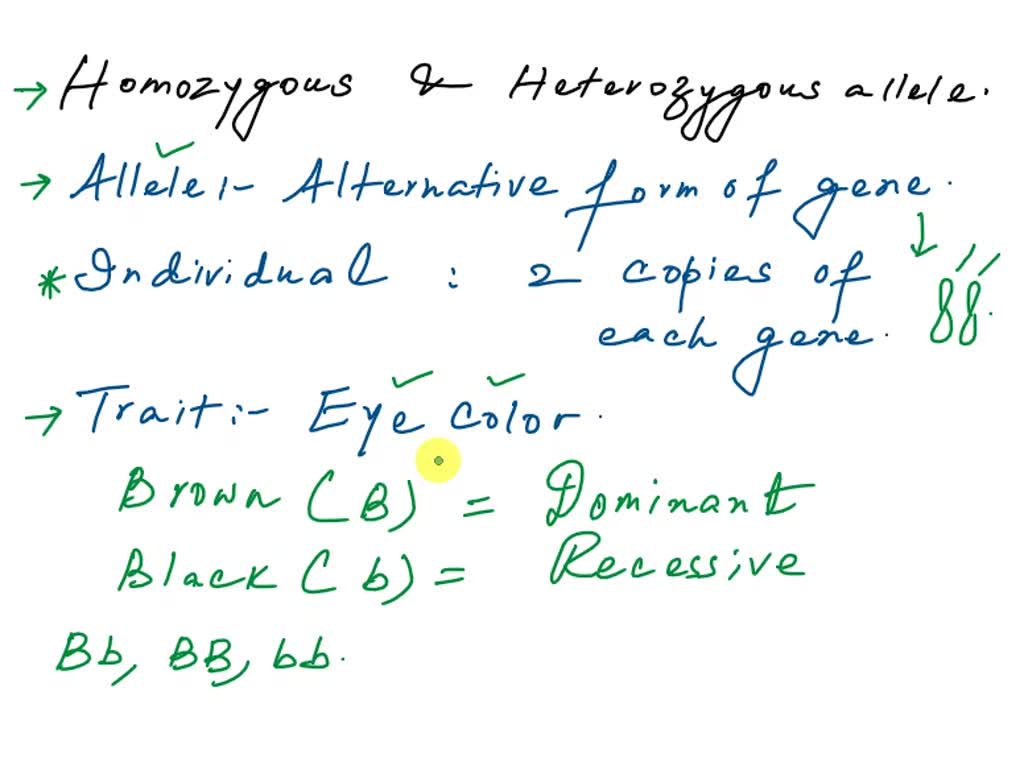 → Homozygous & Heterozygous allele.
→ Allele:- Alternative form of gene.
* Individual : 2 copies of
each gene.
→ Trait:- Eye color.
Brown (B) = Dominant
Black (b) = Recessive
Bb, BB, bb.